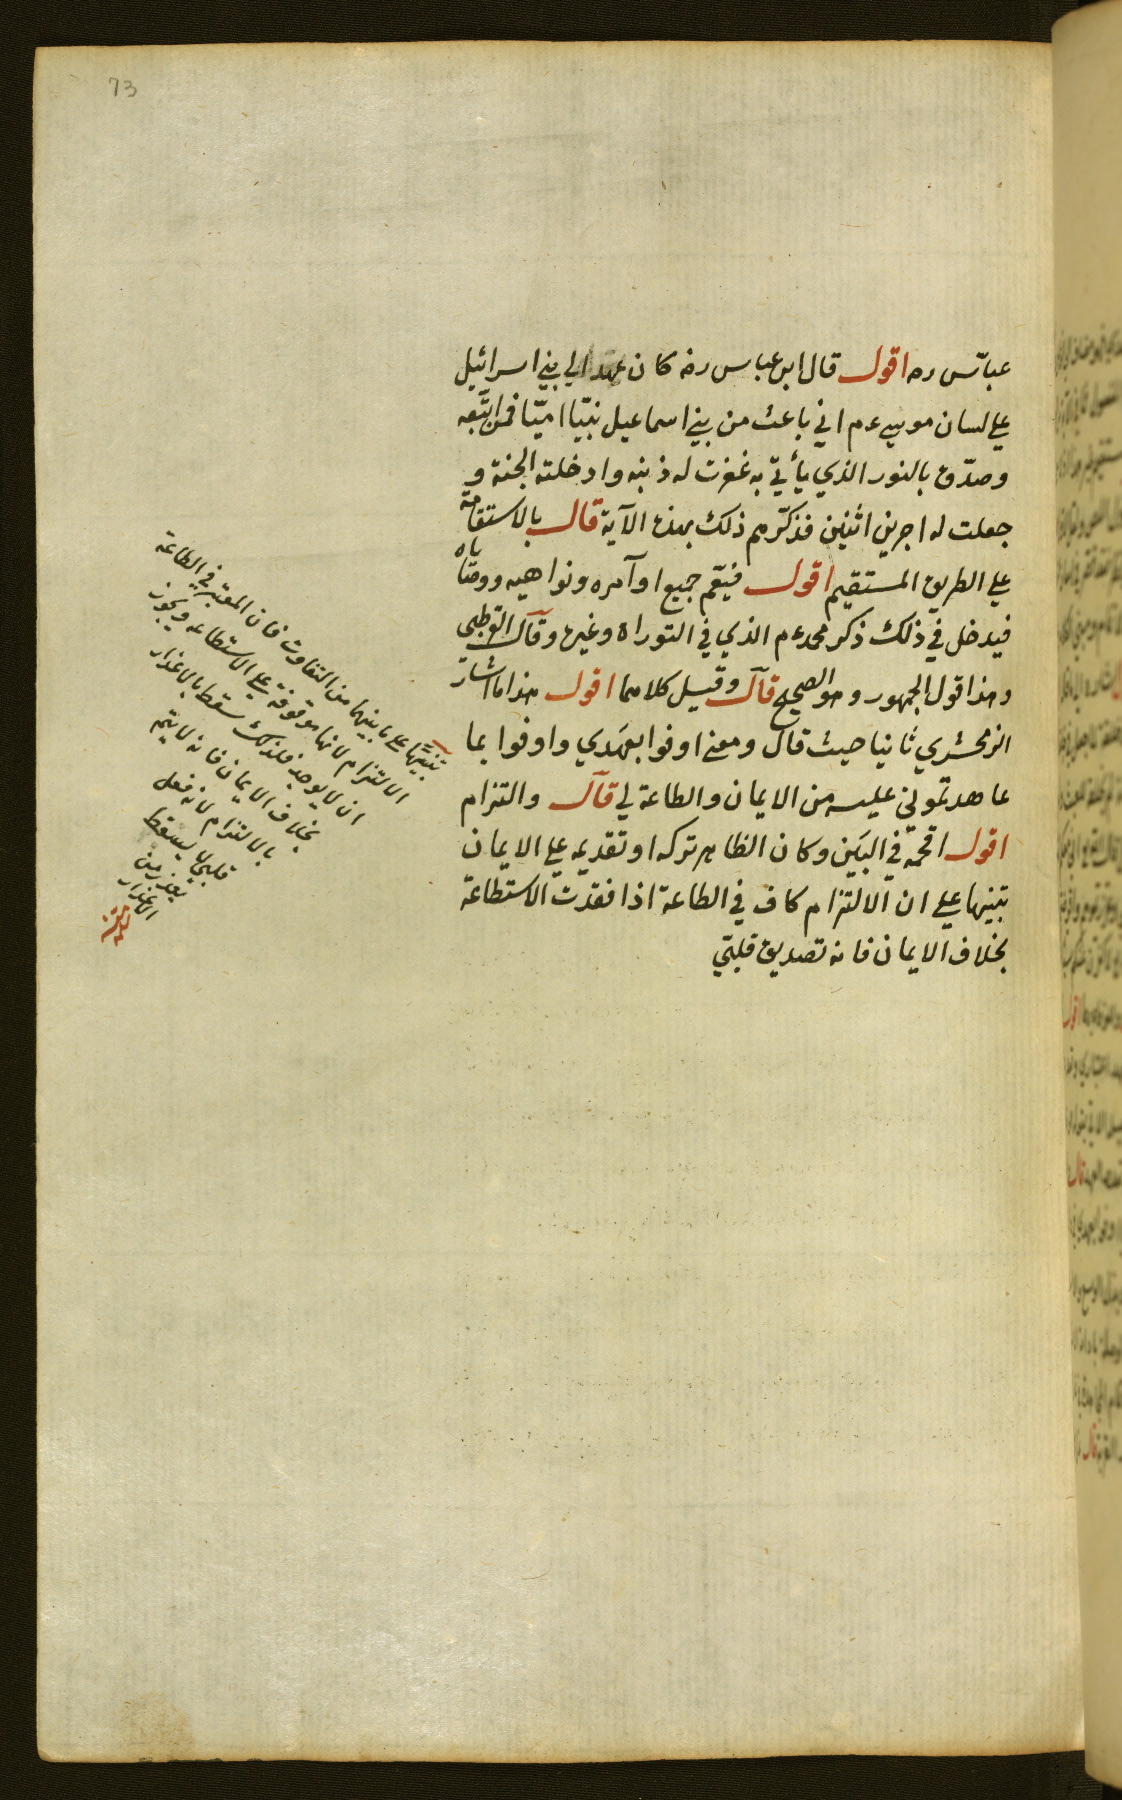 73
عباس رم اقول قال ابن عباس رض كان عهد الي بني اسرائيل
علي لسان موسي عم اني باعث من بني اسماعيل نبيّا اميّا فمن اتّبعه
وصدّق بالنور الذي يأتي به غفرت له ذنبه وادخلته الجنة و
جعلت له اجرين اثنين فذكّرهم ذلك بهذه الآية قال بالاستقامة
علي الطريق المستقيم اقول فيعّم جميع اوآمره ونواهيه ووصاياه
فيدخل في ذلك ذكر محمد عم الذي في التوراة وغيره وقال القرطبي
وهذا قول الجمهور وهو الصحيح قال وقيل كلاهما اقول هذا ما اشار
الزمخشري ثانيا حيث قال ومعني اوفوا بعهدي واوفوا بما
عاهدتموني عليه من الايمان والطاعة لي قال والتزام
اقول اقحمه في البَين وكان الظاهر تركه او تقديمه علي الايمان
تنبيها علي ان الالتزام كاف في الطاعة اذا فقدت الاستطاعة
بخلاف الايمان فانه تصديق قلبّي
تنبيها علي ما بينهما من التفاوت فان المعتبر في الطاعة
الالتزام لانها موقوفة علي الاستطاعه ويجوز
ان لا يوجد فلذلك سقط بالاعذار
بخلاف الايمان فانه لا يتم
بالالتزام لانه فعل
قلبي لا يسقط
بعذر من
الاعذار